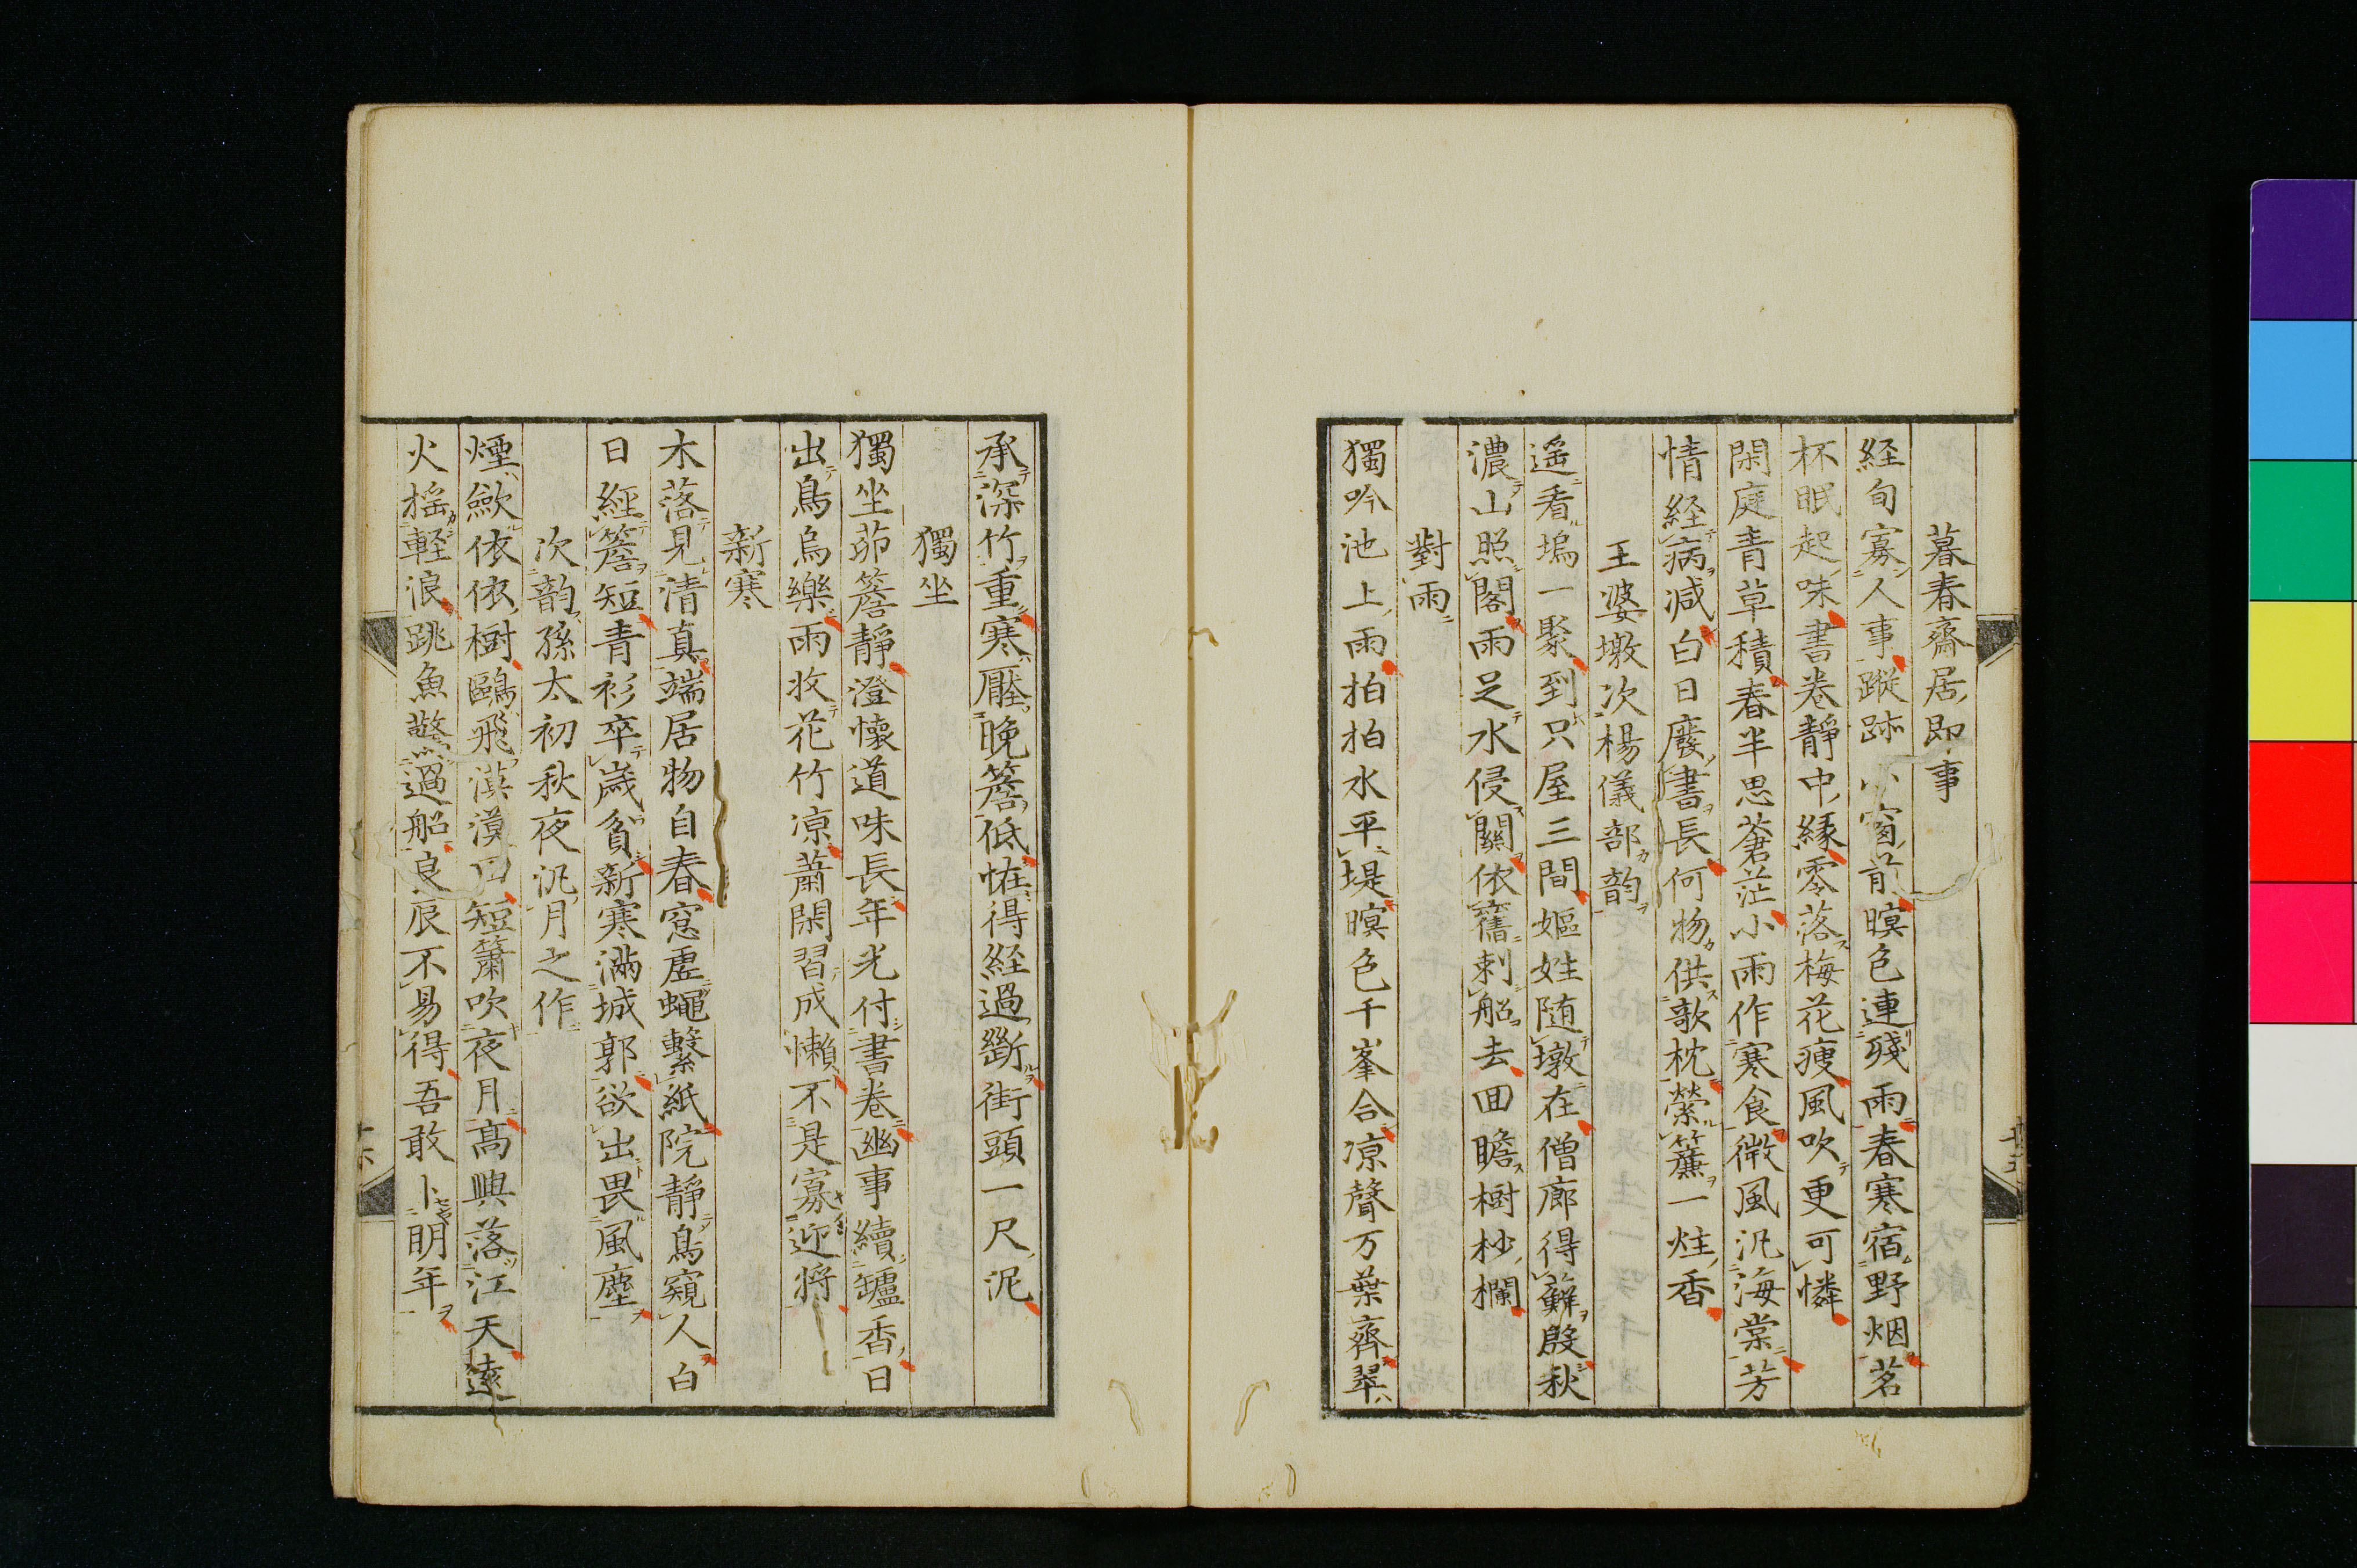 暮春齋居即事
経旬寡人事蹤跡小窗前暝色連殘雨春寒宿野烟茗
杯眠起味書卷靜中緣零落梅花瘦風吹更可憐
閑庭青草積春半思蒼茫小雨作寒食微風汎海棠芳
情経病減白日廢書長何物供歌枕縈簾一炷香
王婆墩次楊儀部韵
遥看塢一聚到只屋三間嫗姓随墩在僧廊得蘚殷秋
濃山照閣雨足水侵關依舊刺船去囬瞻樹杪欄
對雨
獨吟池上雨拍拍水平堤暝色千峯合凉聲万葉齊翠
承深竹重寒壓晩簷低恠得経過斷街頭一尺泥
獨坐
獨坐茆簷靜澄懷道味長年光付書卷幽事續罏香日
出鳥烏樂雨收花竹凉蕭閑習成懶不是寡迎將
新寒
木落見清真端居物自春窓虛蠅繫紙院靜鳥窺人白
日經簷短青衫卒歳貧新寒滿城郭欲出畏風塵
次韵孫太初秋夜汎月之作
煙歛依依樹鷗飛漠漠田短簫吹夜月髙興落江天遠
火揺軽浪跳魚驚過船良辰不易得吾敢卜明年